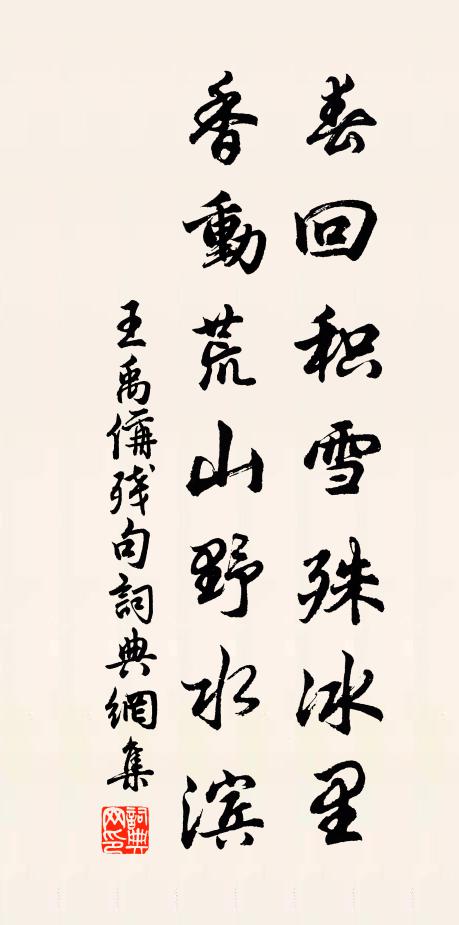 春回积雪殊冰里
香動荒山野水滨
王禹偁残句詞典網集
詞典网印